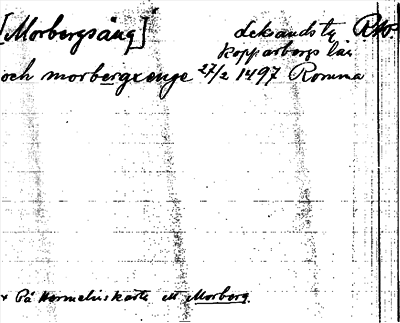 [Morbergsäng] Leksands tg RAp
Kopparbergs län
och morbergxenge 27/2 1497 Romma
x På Hermelins karta ett Morberg.